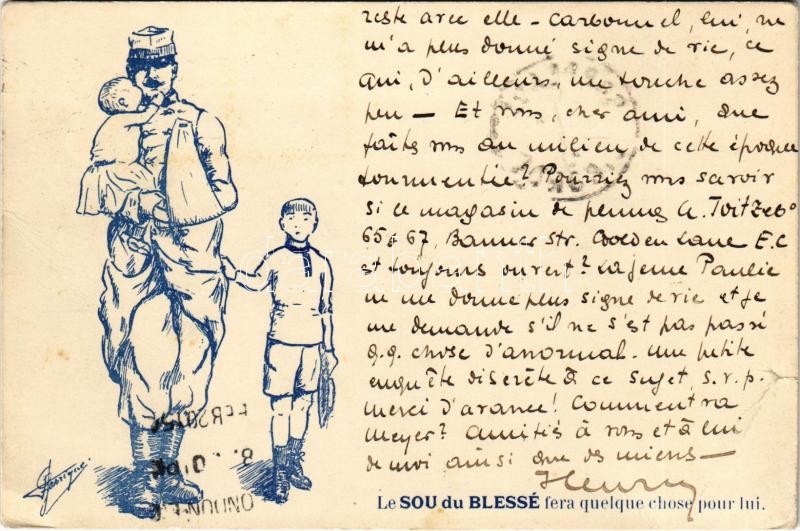 reste avec elle – Carbonnel, lui, ne
m'a plus donné signe de vie, ce
qui, d'ailleurs, me touche assez
peu – Et vous, cher ami, que
faites vous au milieu de cette époque
tourmentée? Pourriez vous savoir
si ce magasin de A.
65 à 67, Banner Str. Golden Lane E.C
est toujours ouvert? La jeune Paulie
ne me donne plus signe de vie et je
me demande s'il ne s'est pas passé
q.q. chose d'anormal – Une petite
enquête discrète à ce sujet, s.v.p.
Merci d'avance! Comment va
Meyer? Amitiés à vous et à lui
de moi ainsi que des miens –
Henry
Le SOU du BLESSÉ fera quelque chose pour lui.
darabanth